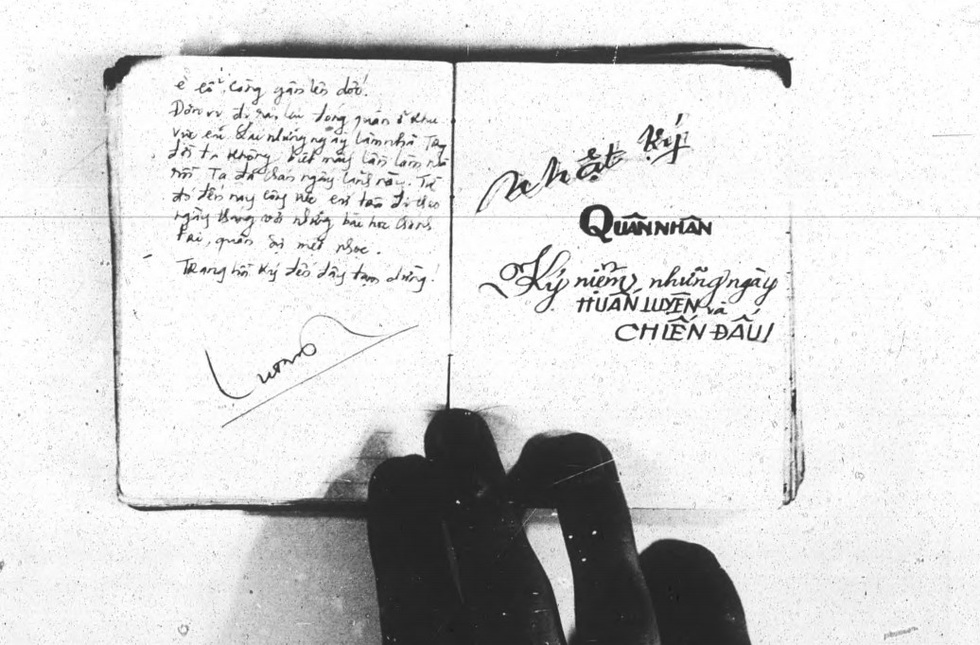 è cổ, còng gân lên đồi!
Đơn vị đi sau lại đóng quân ở khu
vực cũ. Sau những ngày làm nhà Tay
tôi ta không biết mấy lần làm nhà
rồi Ta đã chán ngày lành này. Từ
đó đến nay công việc em tao đi theo
ngày tháng với những bài học chính
trị, quân sự mệt nhọc.
Trang hồi ký đến đây tạm dừng!
Lương
Nhật ký
QUÂN NHÂN
Kỷ niệm những ngày
HUẤN LUYỆN và
CHIẾN ĐẤU!